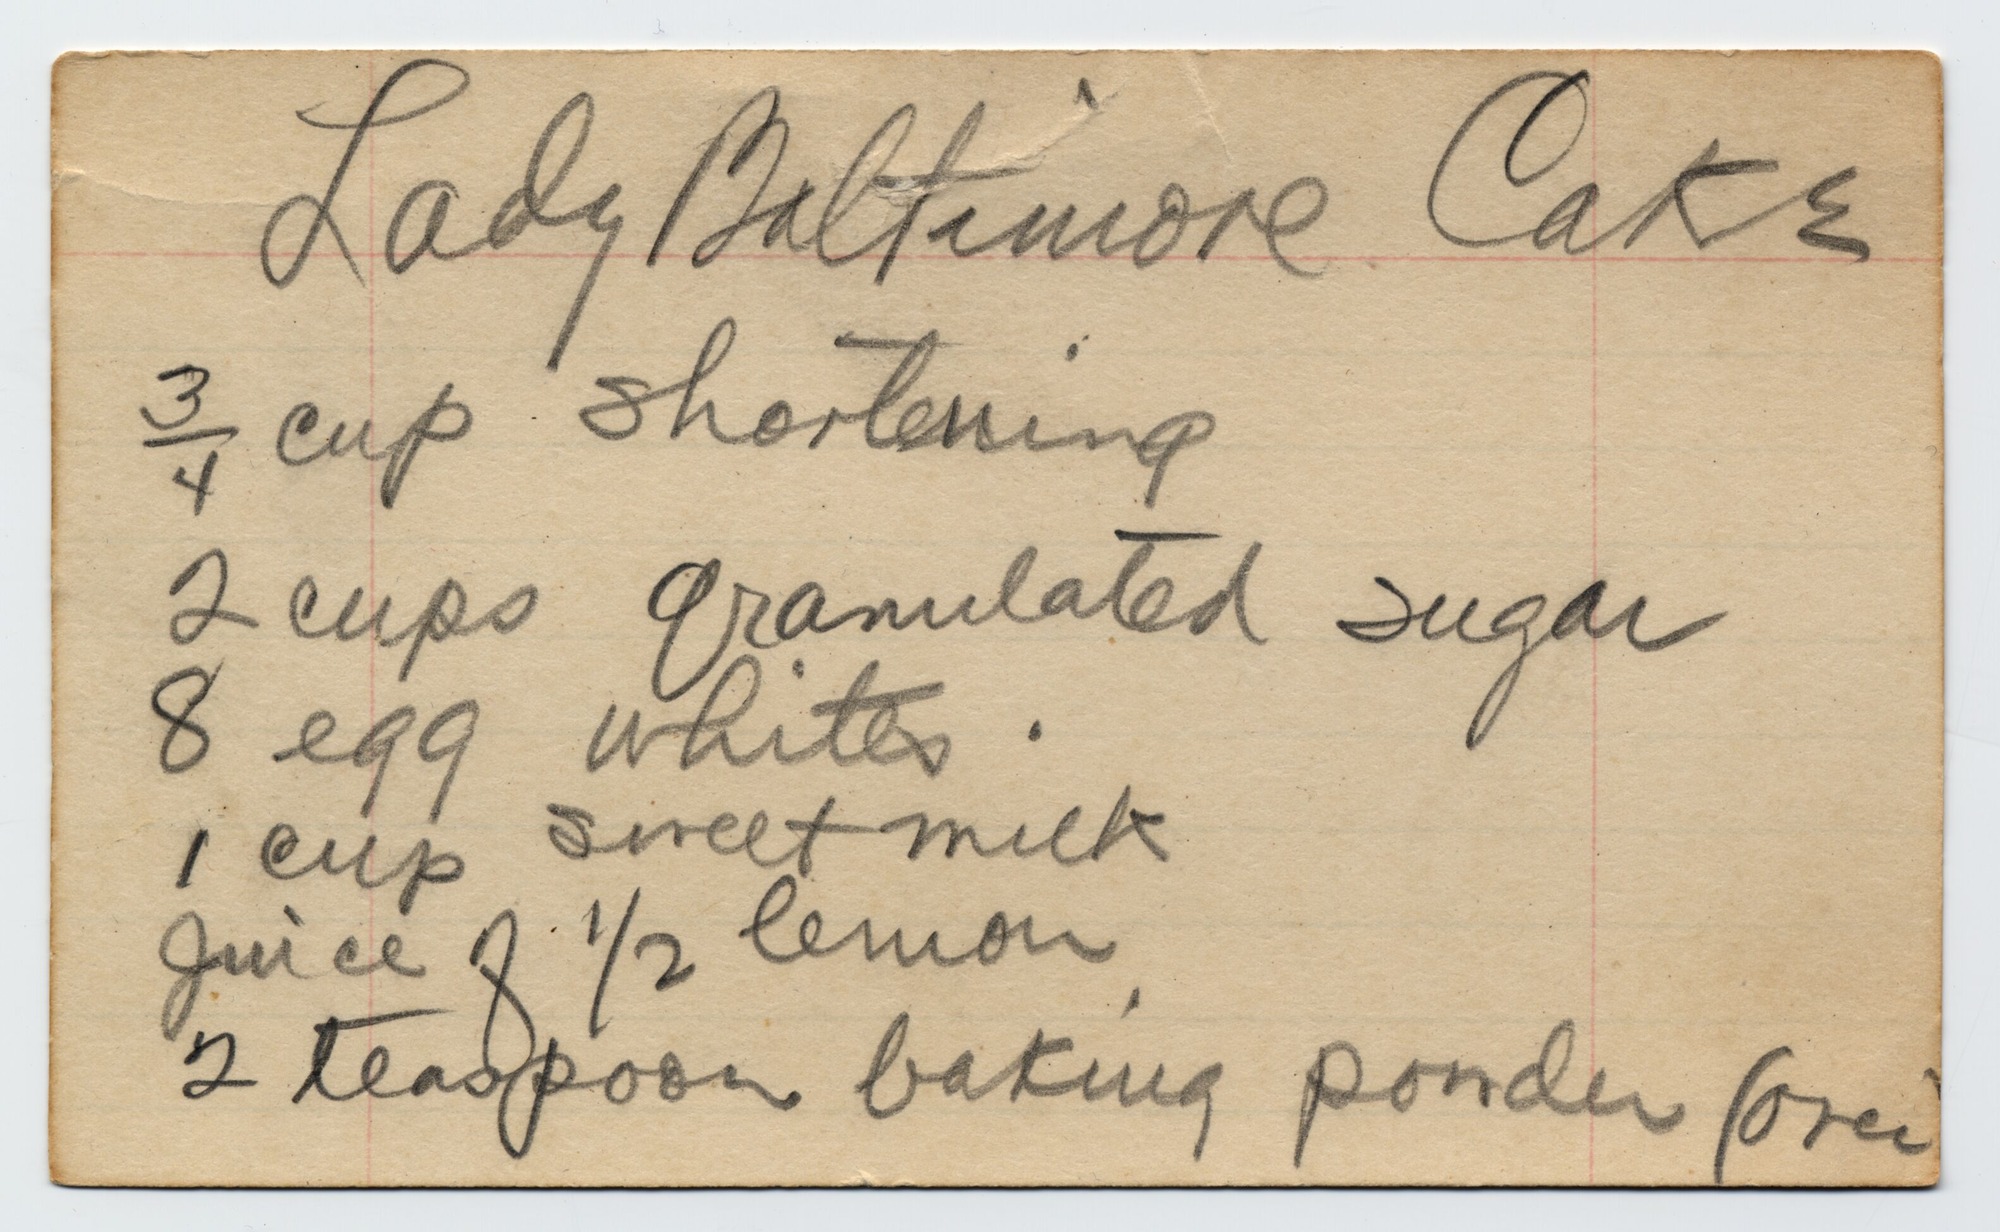 Lady Baltimore Cake
3/4 cup shortening
2 cups granulated sugar
8 egg whites.
1 cup sweet milk
Juice of 1/2 lemon
2 teaspoon baking powder (over